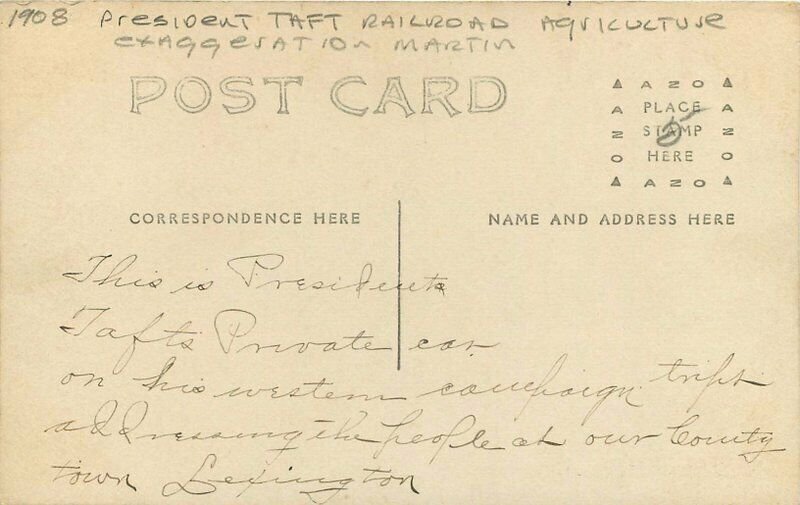 1908 President TAFT RAILROAD AGRICULTURE
EXAGGERATION MARTIN
POST CARD
▲ A Z O ▲
A PLACE A
Z STAMP Z
O HERE O
▲ A Z O ▲
5
CORRESPONDENCE HERE
NAME AND ADDRESS HERE
This is Presidents
Tafts Private car
on his western campaign trip
addressing the people at our County
town Lexington